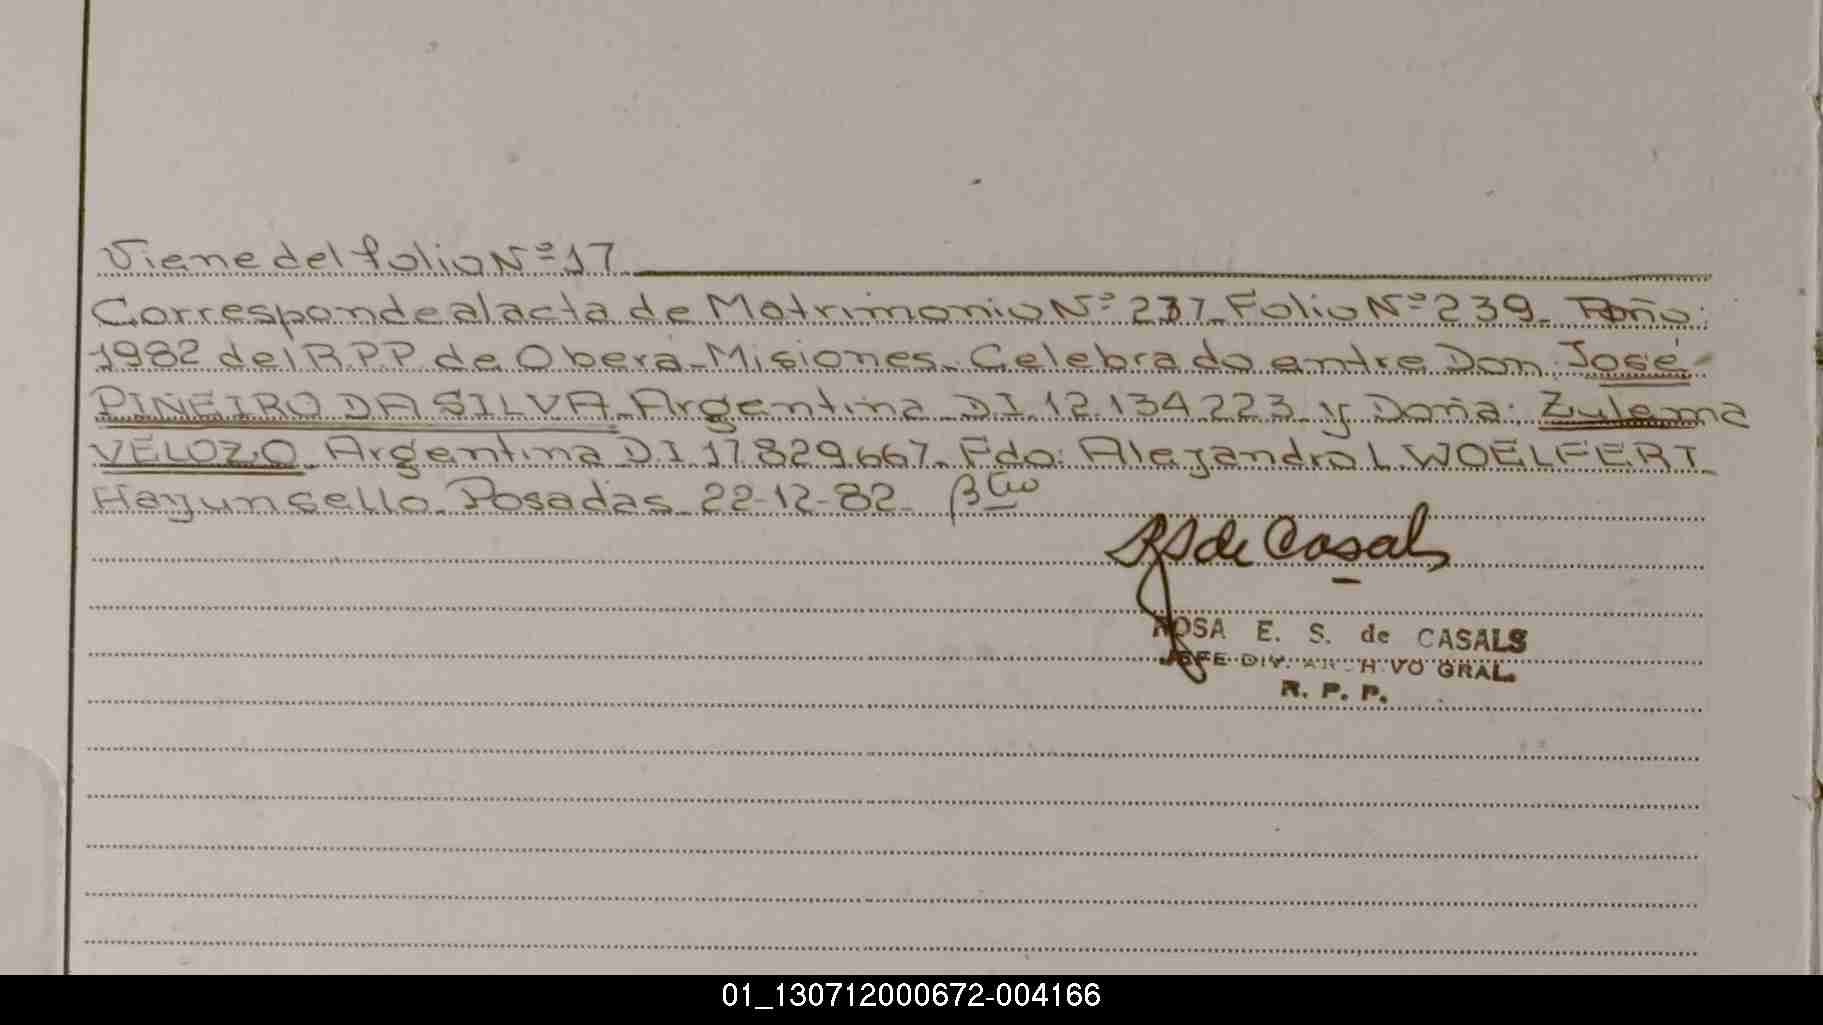 Viene del folio Nº 17
Corresponde al acta de Matrimonio Nº 237 Folio Nº 239. Año:
1982 del R.P.P de Oberá-Misiones. Celebrado entre Don José
PIÑEIRO DA SILVA Argentina DI 12.134.223 y Doña: Zulema
VELOZO. Argentina DI 17.829.667. Fdo: Alejandro L WOELFERT.
Hay un sello. Posadas 22-12-82.
RS de Casals
ROSA E. S. de CASALS
JEFE DIV. ARCHIVO GRAL.
R. P. P.
01_130712000672-004166